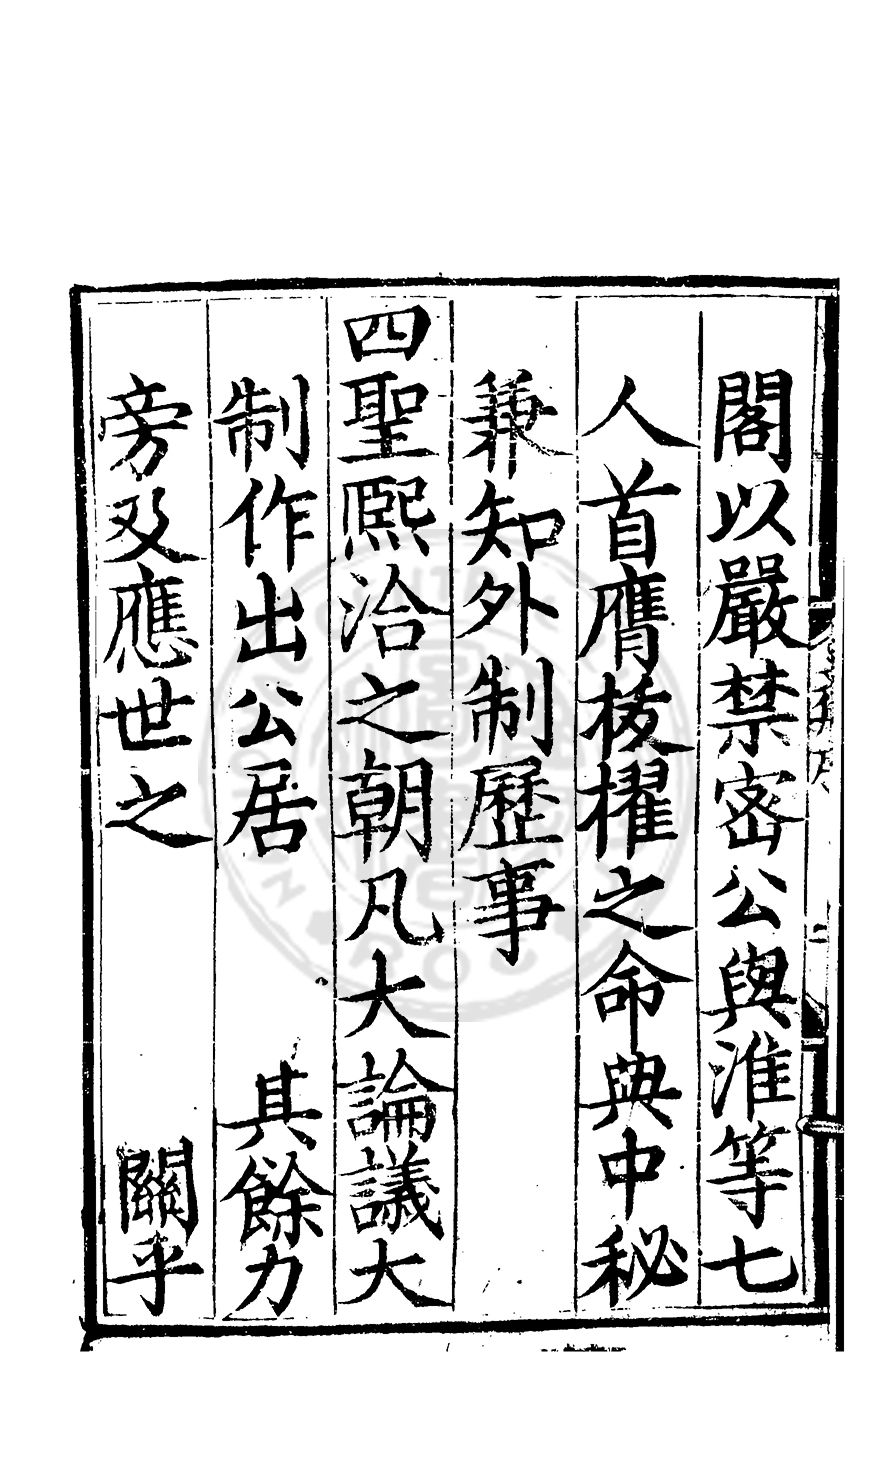 閣以嚴禁密公與淮等七
人首膺棱櫂之命典中秘
兼知外制歷事
四聖熈洽之朝凡大論議大
制作出公居　　其餘力
旁及應世之　　關乎